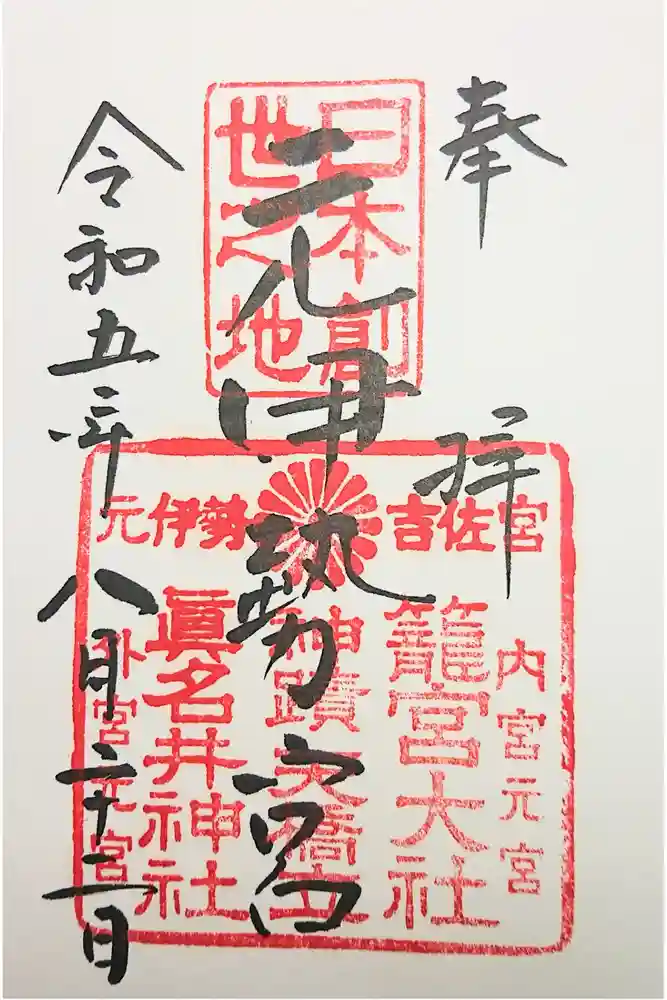 奉拝
元伊勢宮
令和五年八月二十二日
日本創
世之地
元伊勢 吉佐宮
内宮元宮
籠宮大社
神蹟天橋立
眞名井神社
外宮元宮